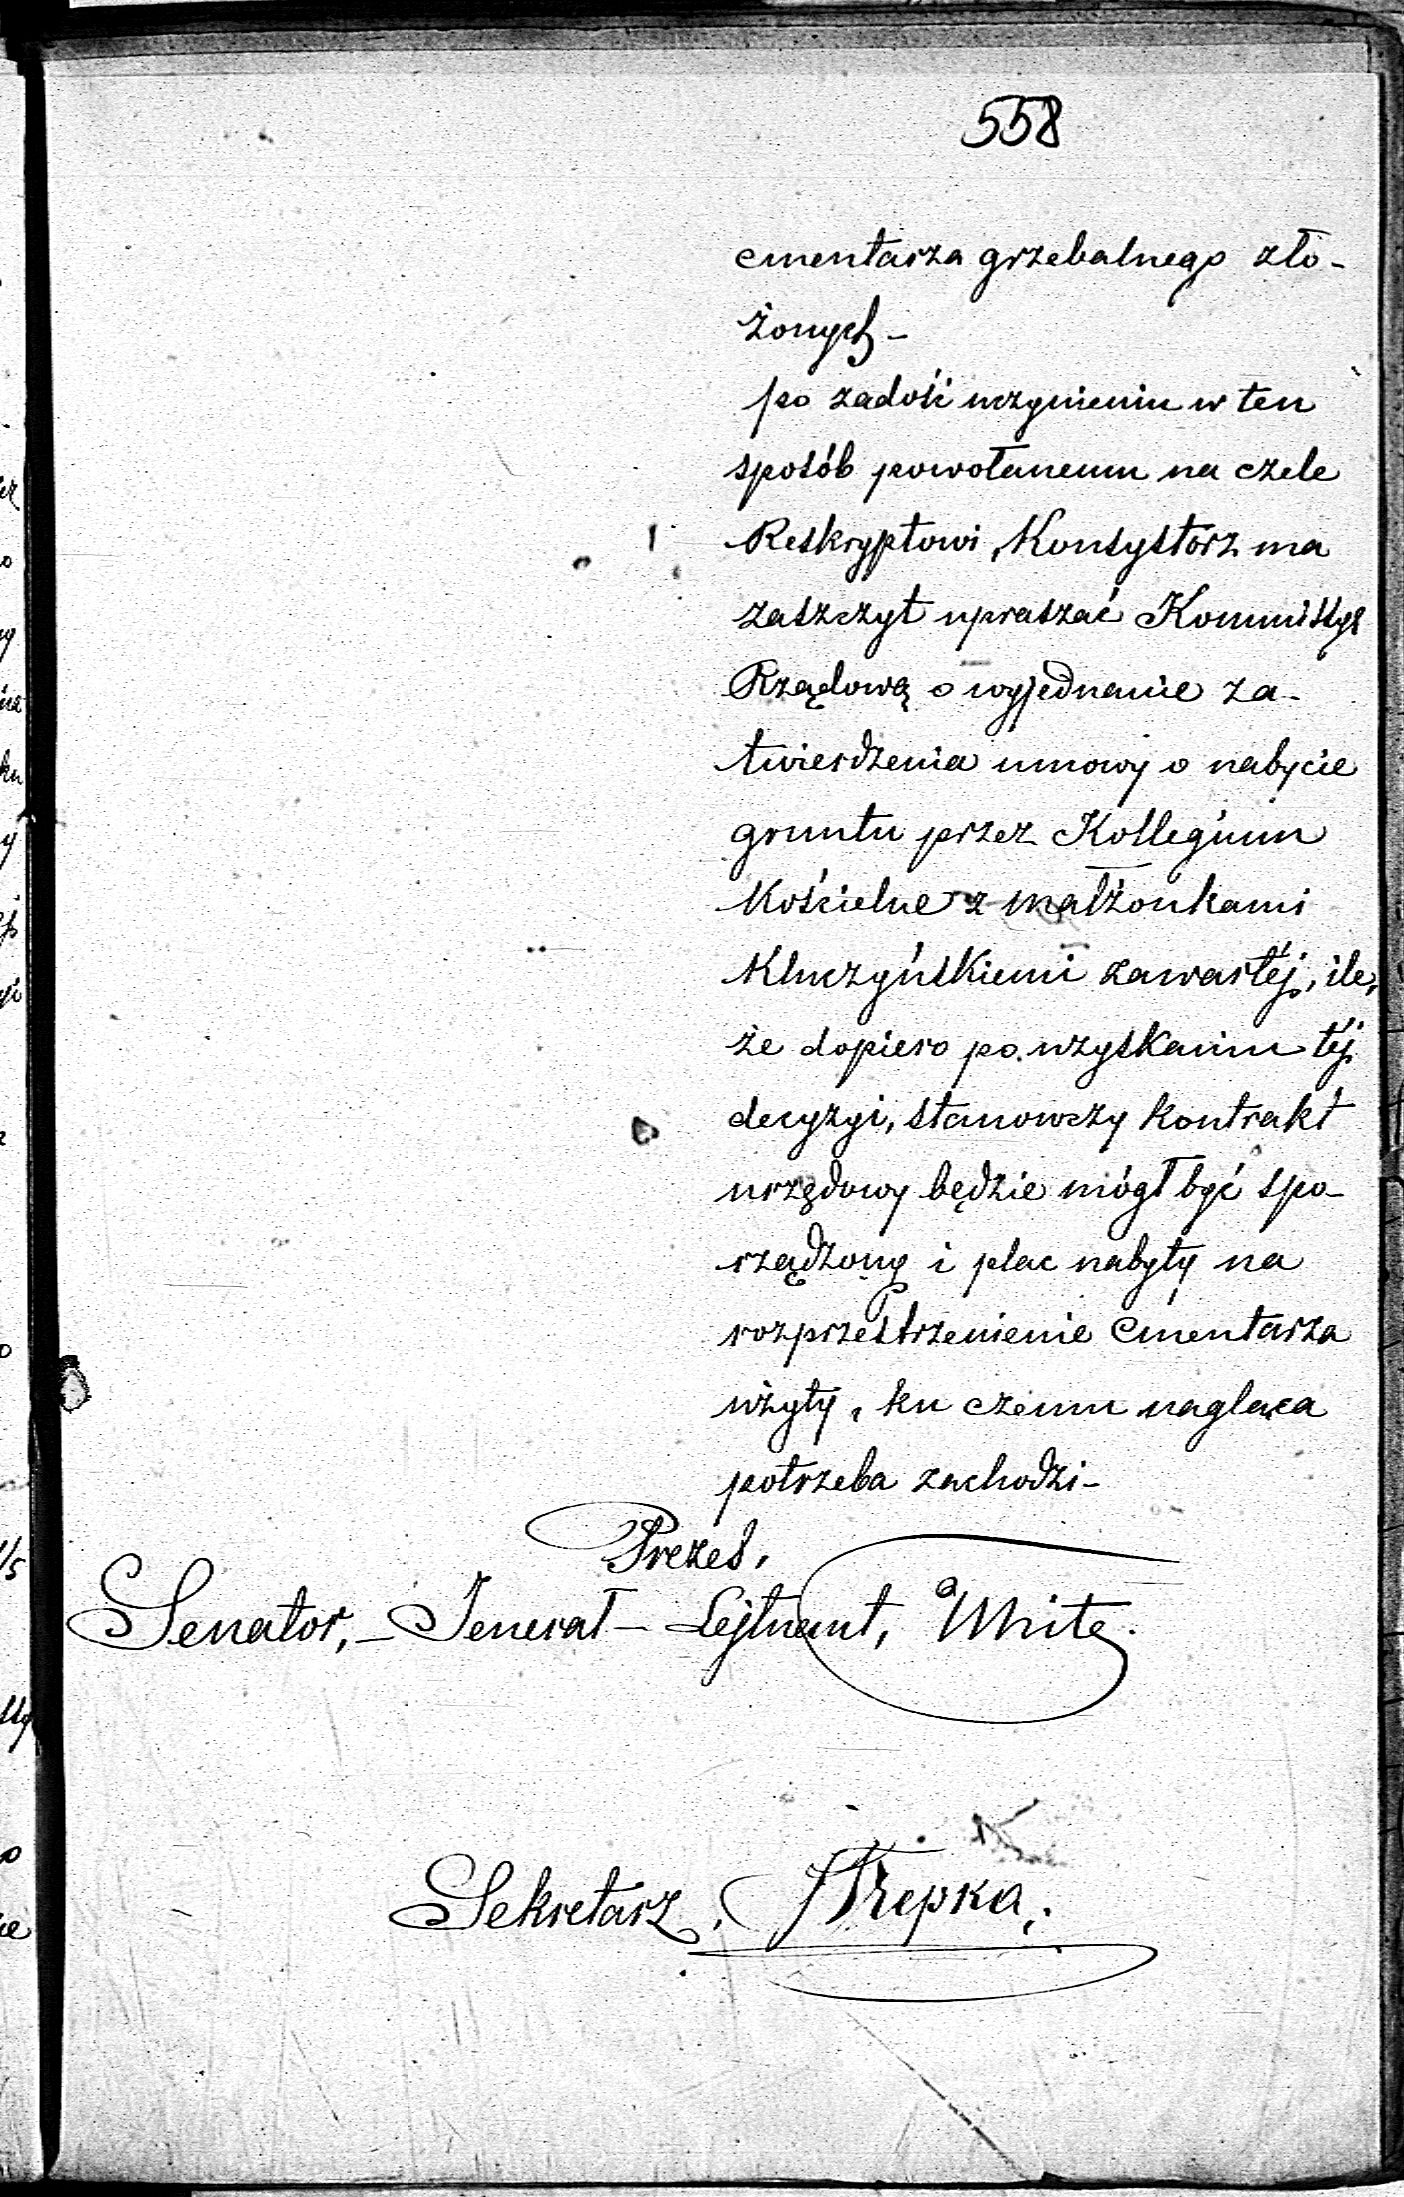 558
cmentarza grzebalnego zło-
żonych-
po zadość uczynieniu w ten
sposób powołanemu na czele
Reskryptowi, Konsystorz ma
zaszczyt upraszać Kommissyę
Rządową o wyjednanie za-
twierdzenia umowy o nabycie
gruntu przez Kollegium
Kościelne z małżonkami
Kluczyńskiemi zawartéj, ile,
że dopiero po uzyskaniu téj
decyzyi, stanowczy kontrakt
urzędowy będzie mógł być spo-
rządzony i plac nabyty na
rozprzestrzenienie Cmentarza
użyty, ku czemu nagląca
potrzeba zachodzi-
Prezes,
Senator, - Jenerał - Lejtnant, White.
Sekretarz,